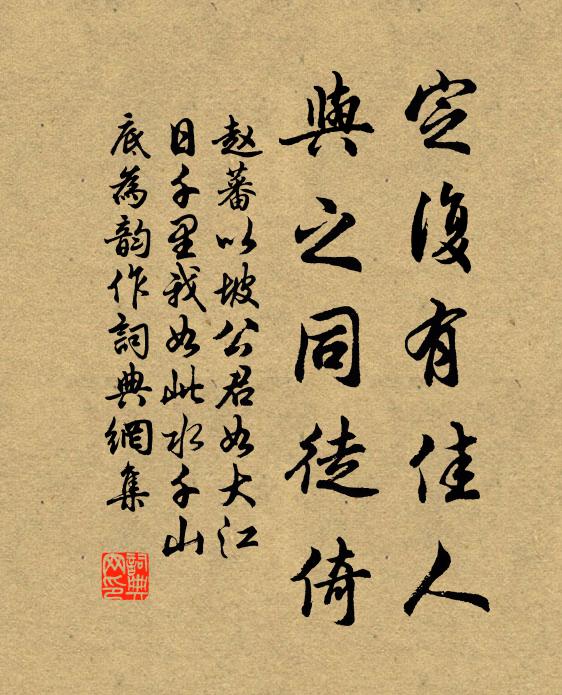 定復有佳人
與之同徙倚
赵蕃以坡公君如大江
日千里我如此水千山
底為韵作詞典網集
詞典
网印